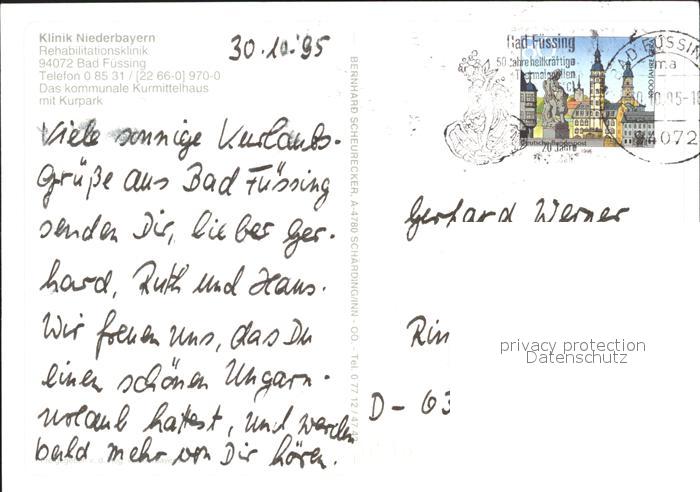 Klinik Niederbayern
Rehabilitationsklinik
94072 Bad Füssing
Telefon 0 85 31 / [22 66-0] 970-0
Das kommunale Kurmittelhaus
mit Kurpark
30.10.95
Viele sonnige Kurlaubs-
Grüße aus Bad Füssing
senden Dir, lieber Ger-
hard, Ruth und Hans.
Wir freuen uns, das Du
einen schönen Ungarn-
urlaub hattest, und werden
bald mehr von Dir hören.
BERNHARD SCHEURECKER, A-4780 SCHÄRDING/INN - OÖ. - Tel. 0 77 12 / 47 42
Bad Füssing
50 Jahre heilkräftige
Thermalquellen
BAD FÜSSING
30.10.95-18
94072
1000 JAHRE
Deutsche Bundespost
Gerhard Werner
Rin
D - 63
privacy protection
Datenschutz